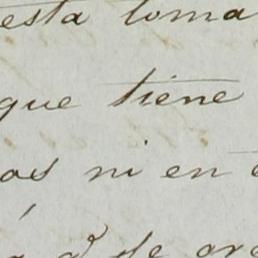 esta toma
que tiene
os ni en
de